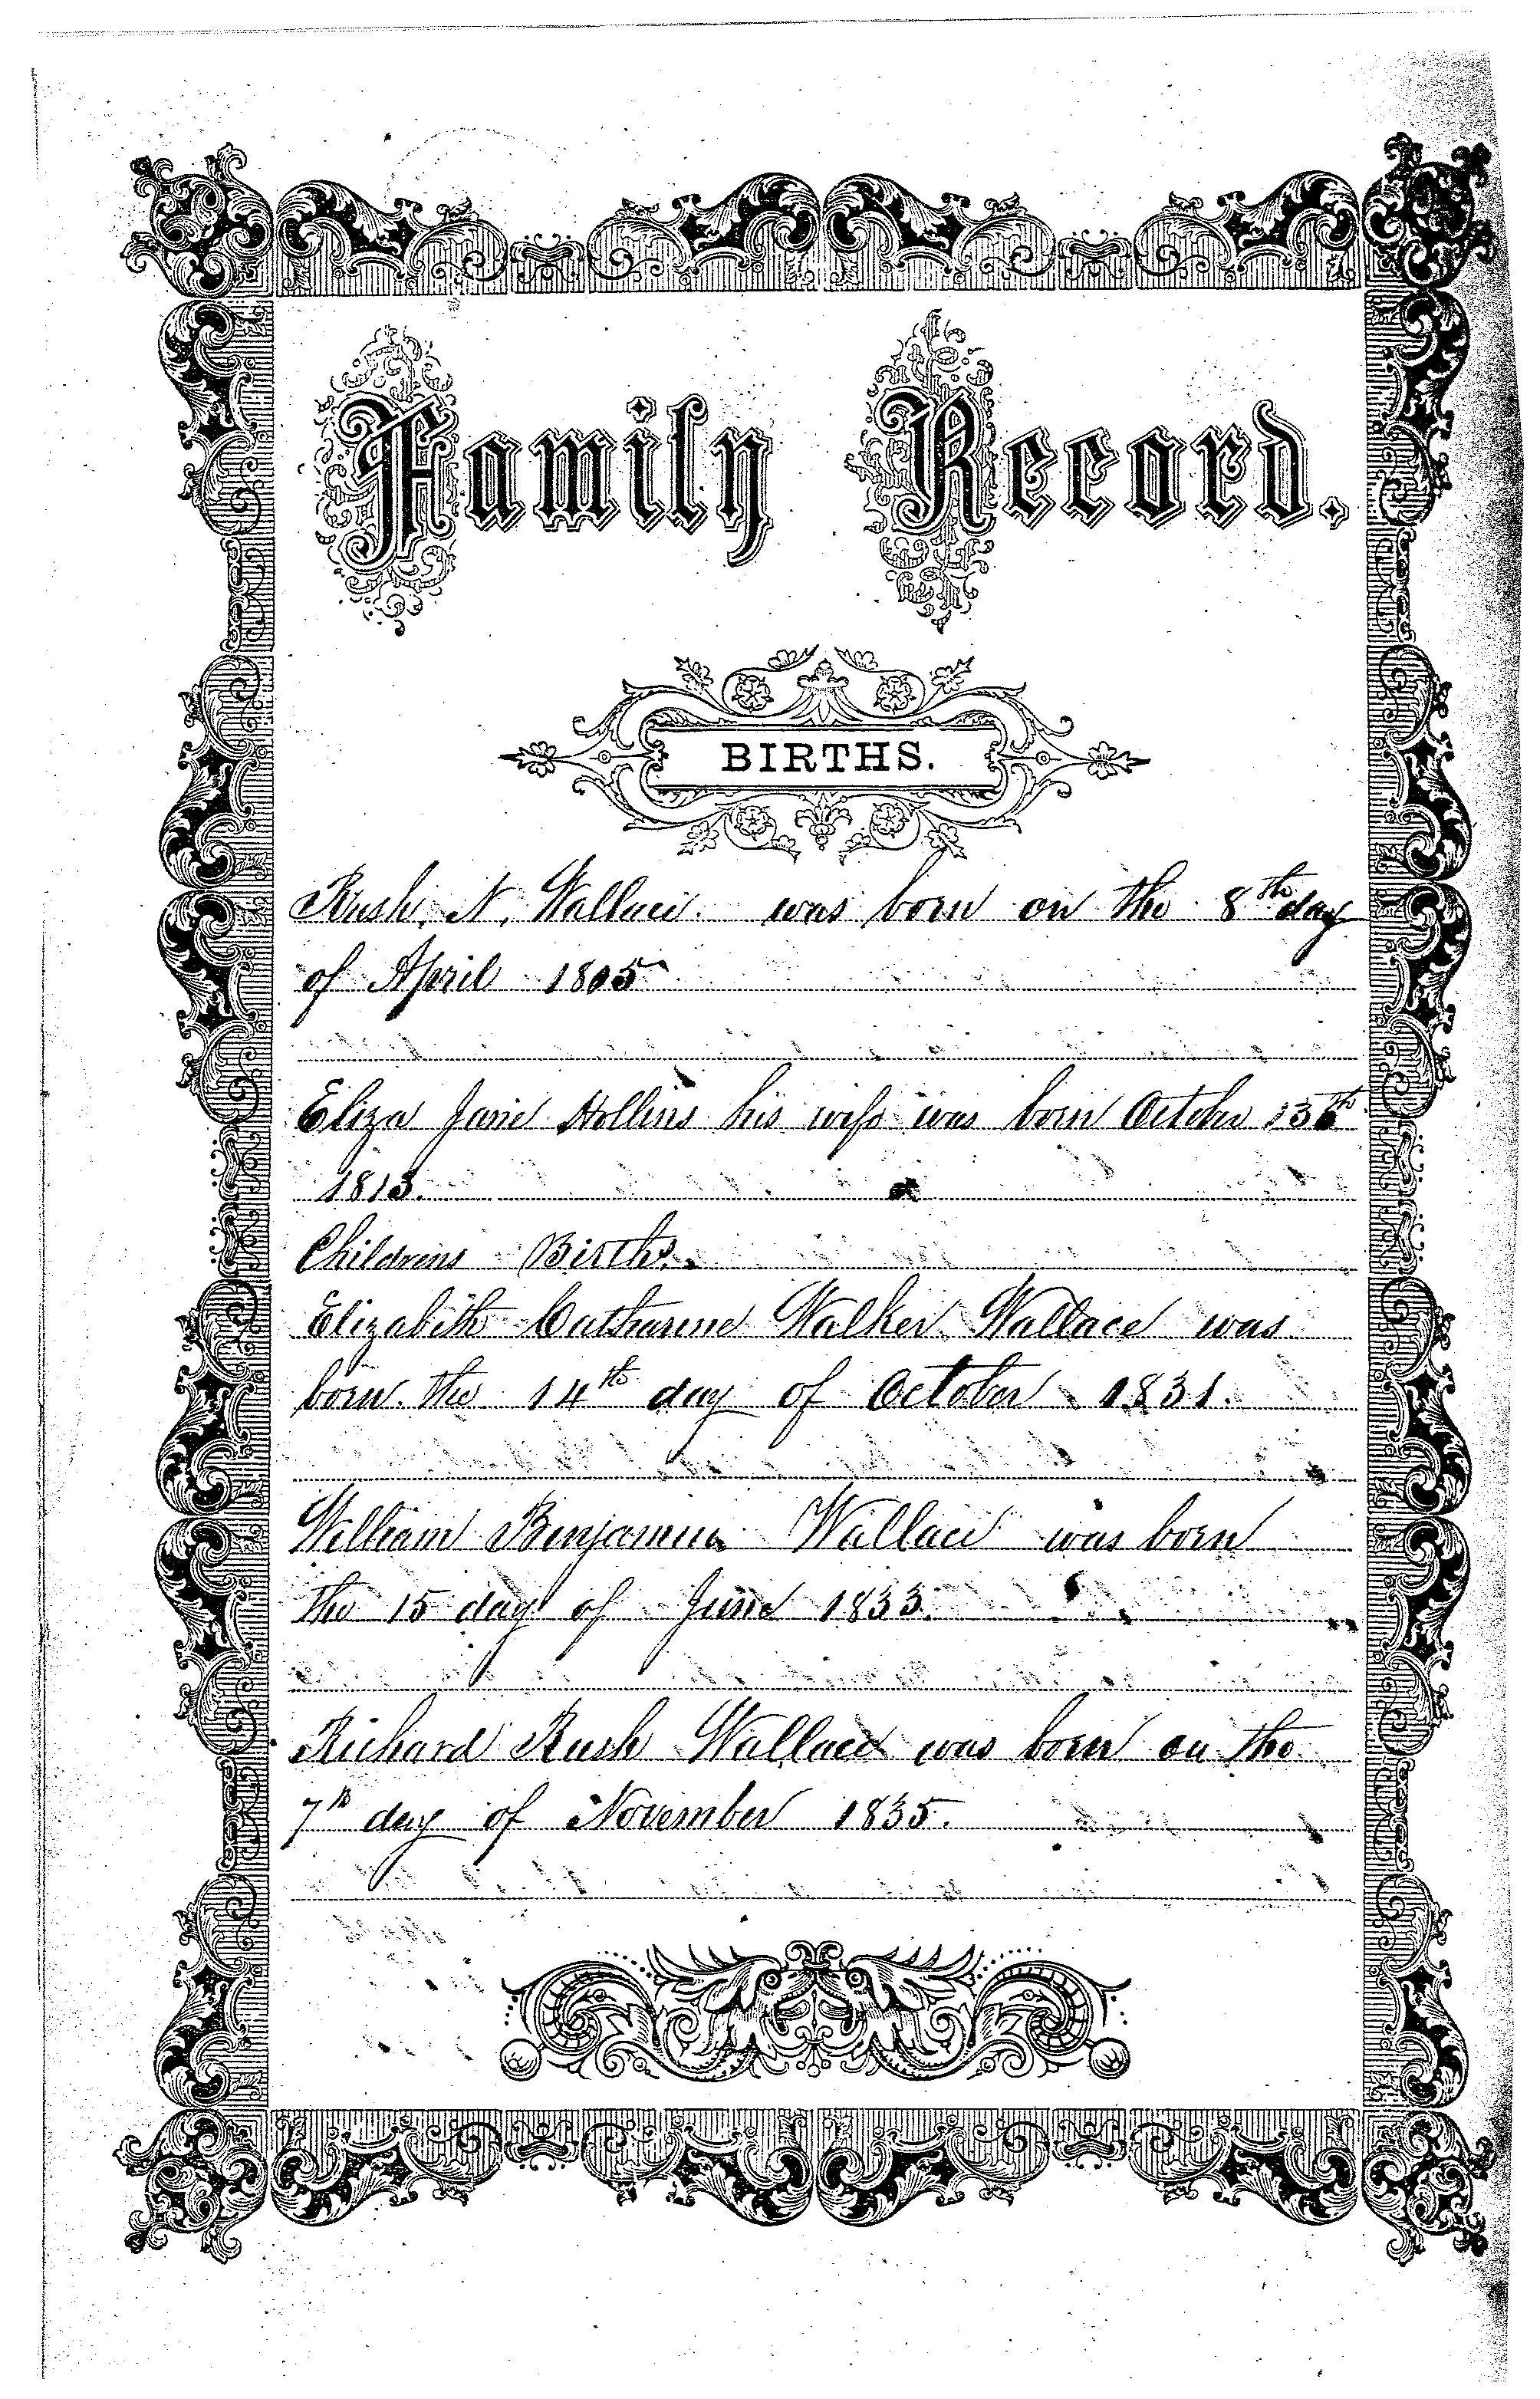 Family Record.
BIRTHS.
Rush. N. Wallace. was born on the 8th day
of April 1805
Eliza Jane Hollins his wife was born October 13th
1813.
Childrens Births.
Elizabeth Catharine Walker Wallace was
born the 14th day of October 1831.
William Benjamin Wallace was born
the 15 day of June 1833.
Richard Rush Wallace was born on the
7th day of November 1835.